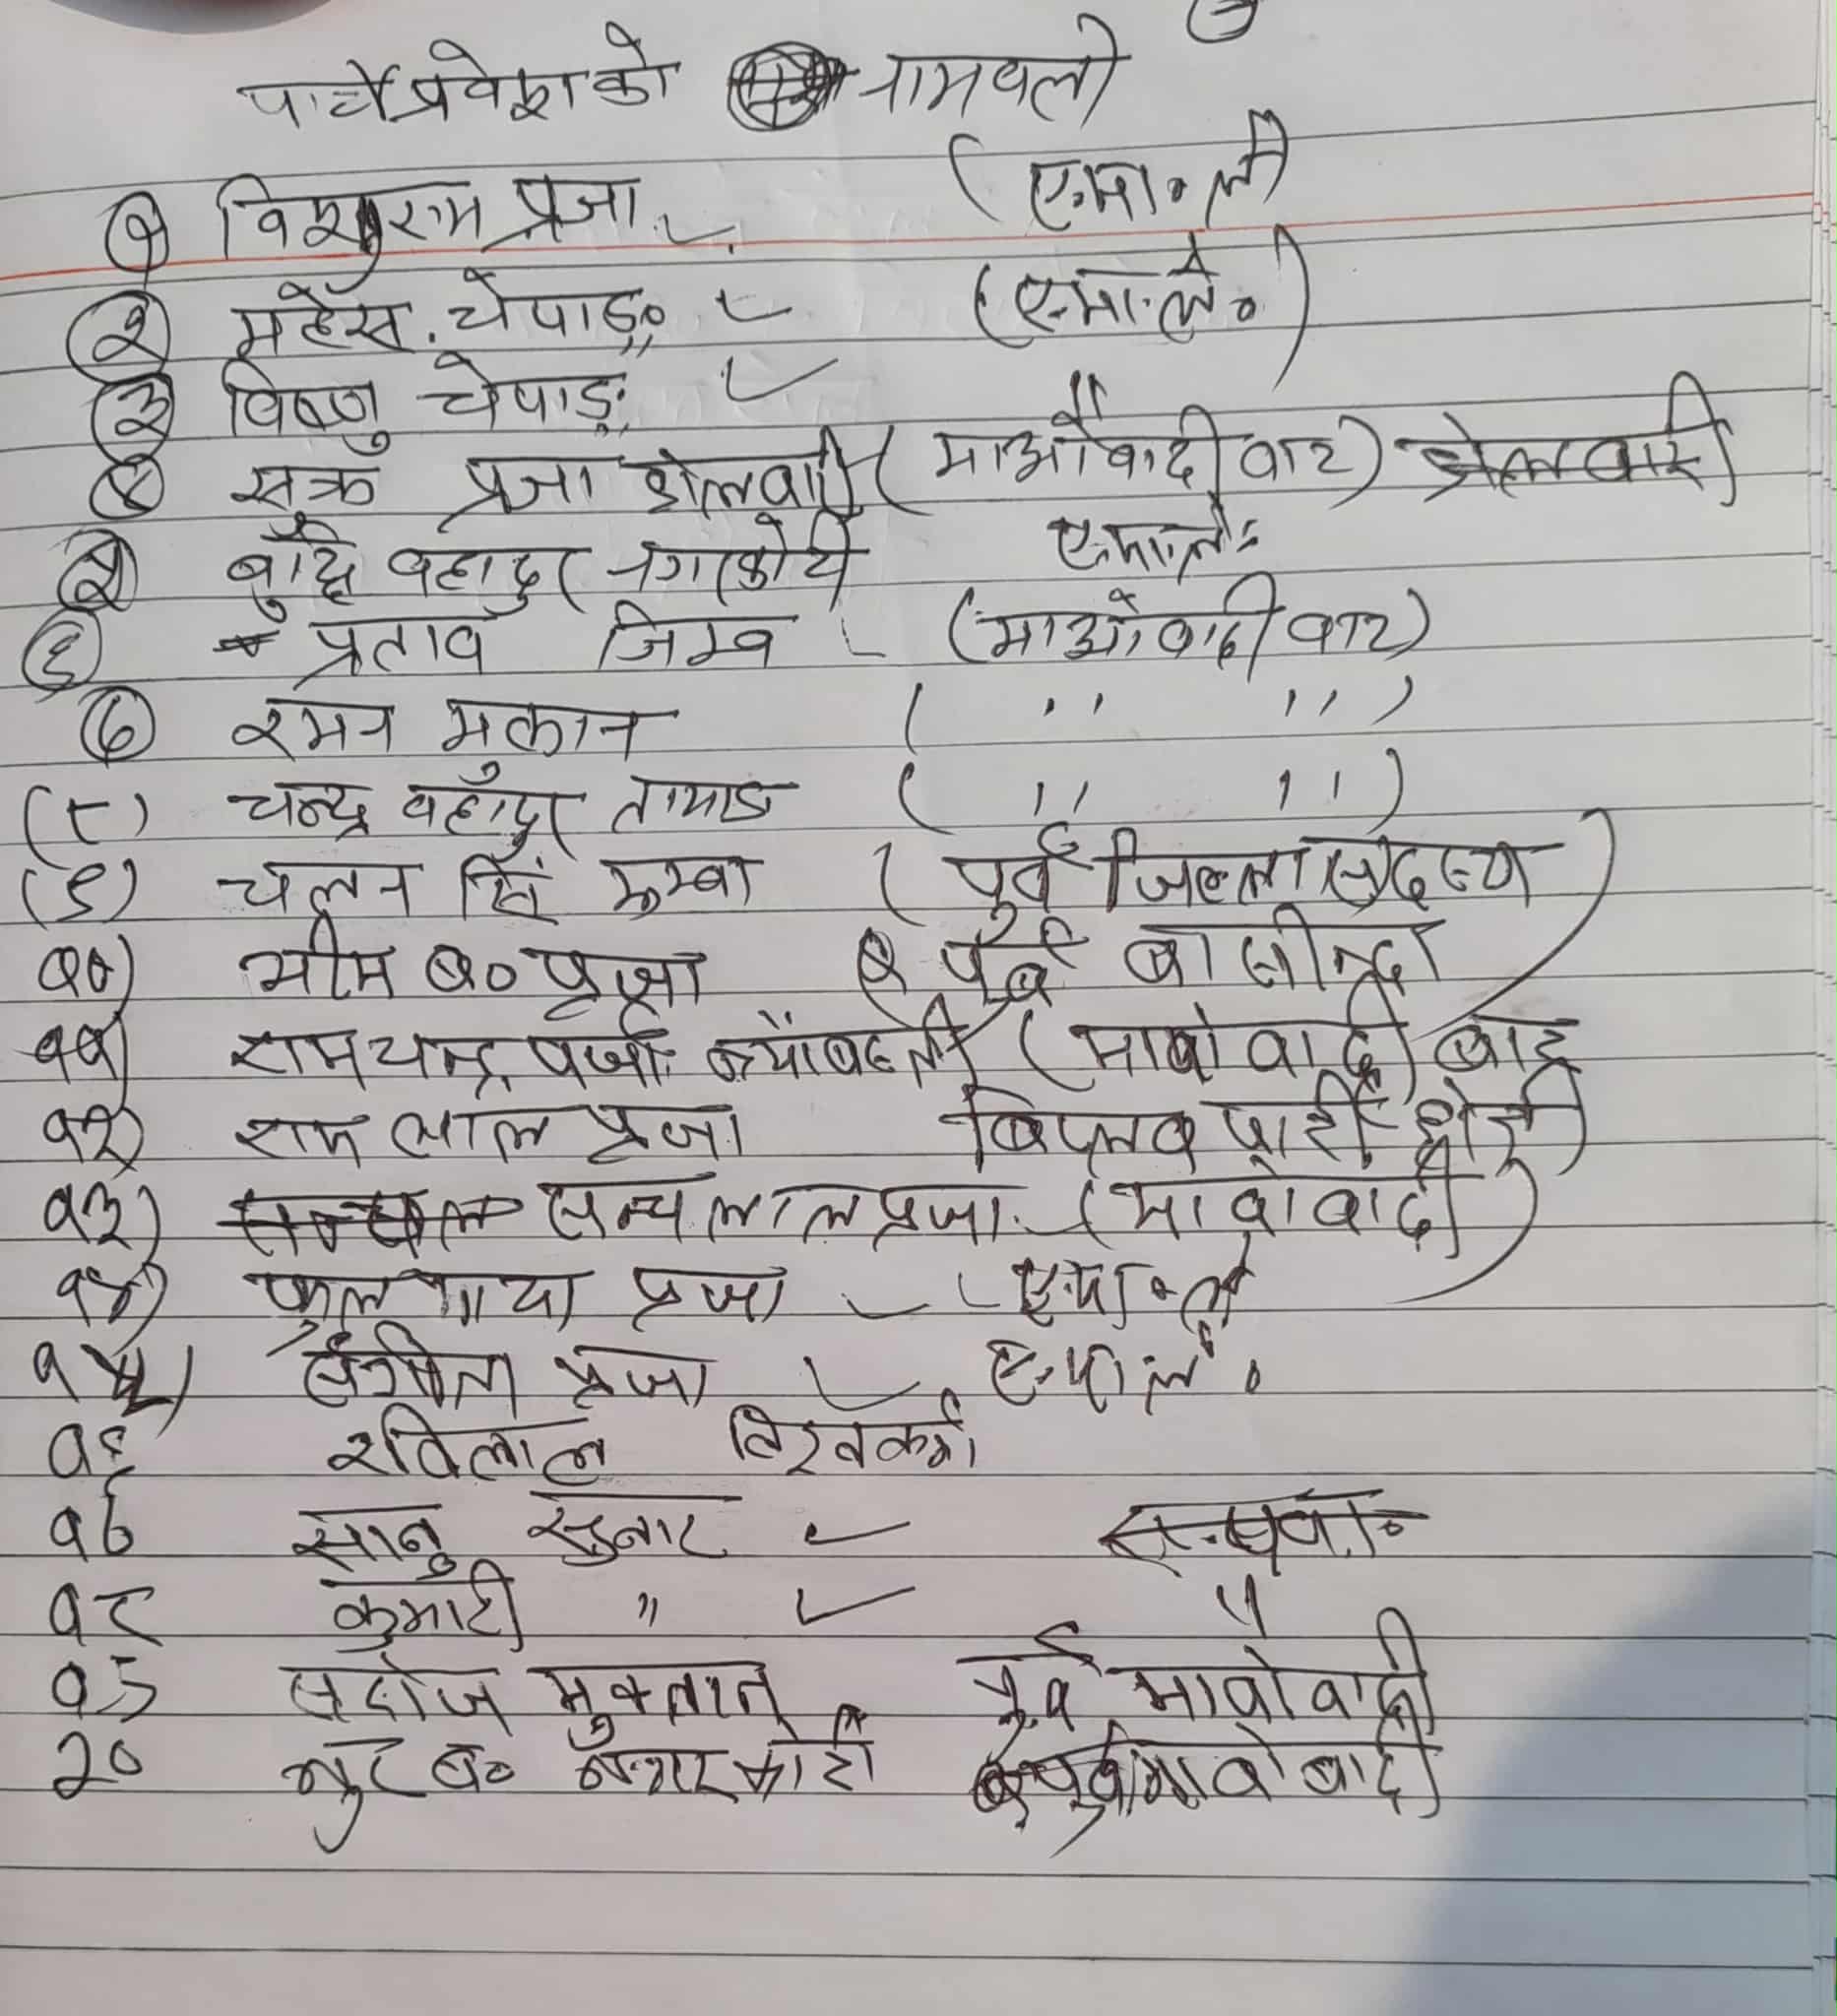 पार्टी प्रवेशको नामवली
१ विशुराम प्रजा (ए.मा.ले)
२ महेस चेपाङ (ए.मा.ले.)
३ विष्णु चेपाङ "
४ सुक्र प्रजा झोलवारी (माओवादी वाट)
५ बुद्धि वहादुर नगरकोटी ए.मा.ले
६ प्रताव जिम्व (माओवादी वाट)
७ रमन मुक्तान ( " " )
(८) चन्द्र वहादुर तामाङ ( " " )
(९) चलन सिं रुम्बा (पुर्व जिल्ला सदस्य)
१०) भीम ब० प्रजा पुर्व बासीन्दा
११) रामचन्द्र प्रजा (माबोवादी बाट
१२) राम लाल प्रजा बिप्लव पार्टी छोडी
१३) सन्चलाल प्रजा (माबोवादी)
१४) फुलमाया प्रजा ए.मा.ले
१५) प्रजा ए.मा.ले.
१६ रविलाल विश्वकर्मा
१७ सानु सुनार
१८ कुमारी " "
१९ सरोज मुक्तान पुर्व माबोवादी
२० ब० नगरकोटी पुर्व माबोबादी